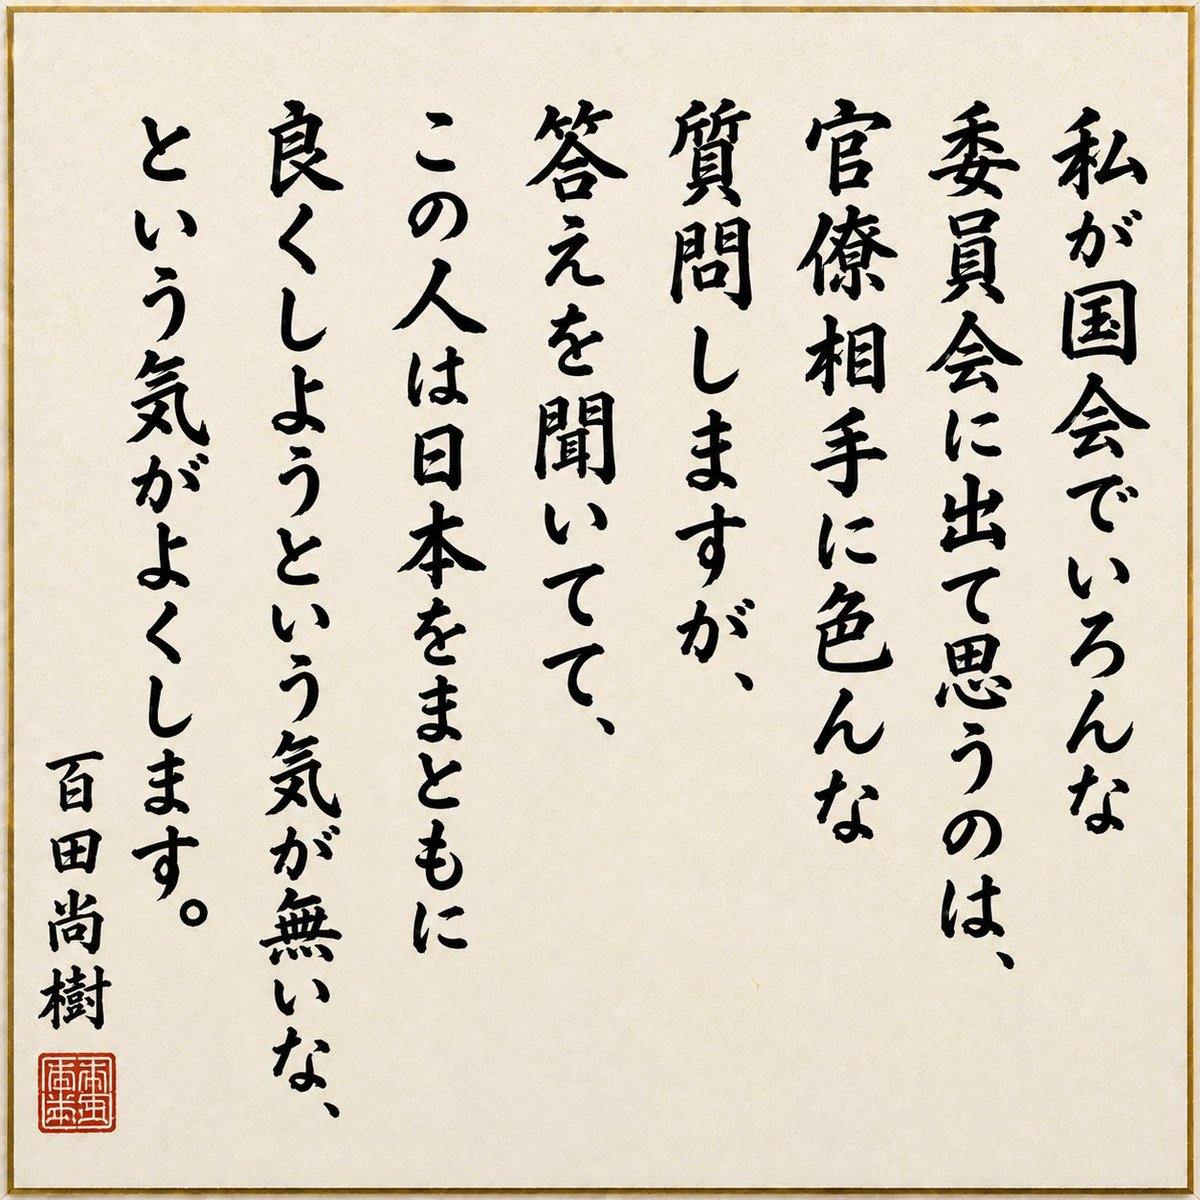 私が国会でいろんな
委員会に出て思うのは、
官僚相手に色んな
質問しますが、
答えを聞いてて、
この人は日本をまともに
良くしようという気が無いな、
という気がよくします。
百田尚樹